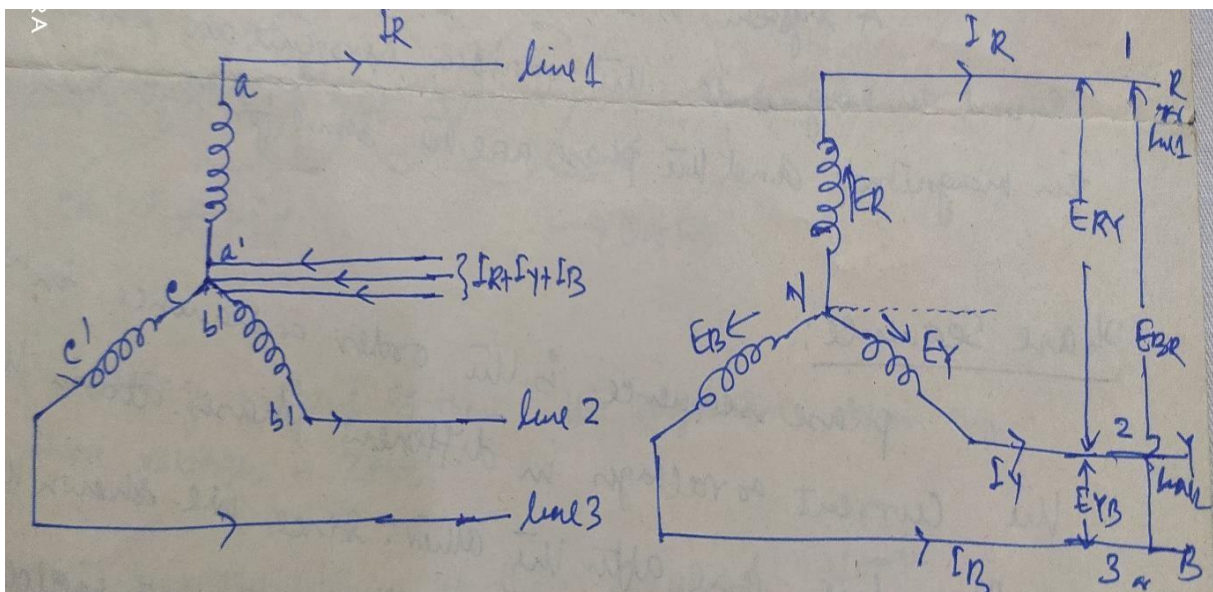 RA
IR
line 1
a
a'
} IR+IY+IB
c
b1
c'
b1
line 2
line 3
IR
1
R
line1
ER
ERY
N
EB
EY
EBR
2
Y
IY
EYB
IB
3
or
B